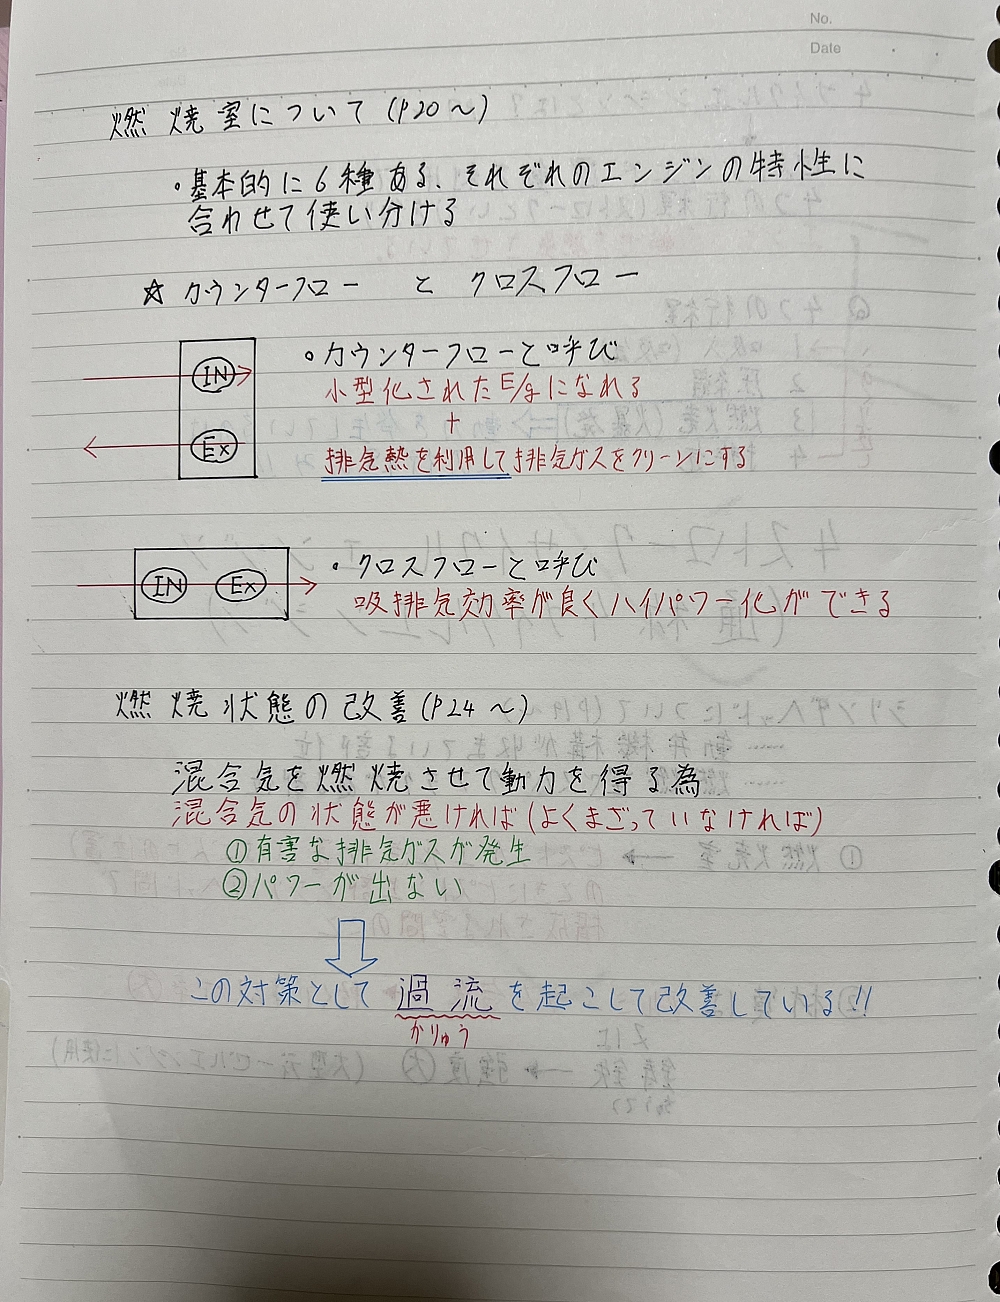 No.
Date
燃焼室について(P20〜)
・基本的に6種ある、それぞれのエンジンの特性に
合わせて使い分ける
☆ カウンターフロー と クロスフロー
IN
Ex
・カウンターフローと呼び
小型化されたE/gになれる
+
排気熱を利用して排気ガスをクリーンにする
IN Ex
・クロスフローと呼び
吸排気効率が良くハイパワー化ができる
燃焼状態の改善(P24〜)
混合気を燃焼させて動力を得る為
混合気の状態が悪ければ(よくまざっていなければ)
①有害な排気ガスが発生
②パワーが出ない
この対策として過流を起こして改善している!!
かりゅう